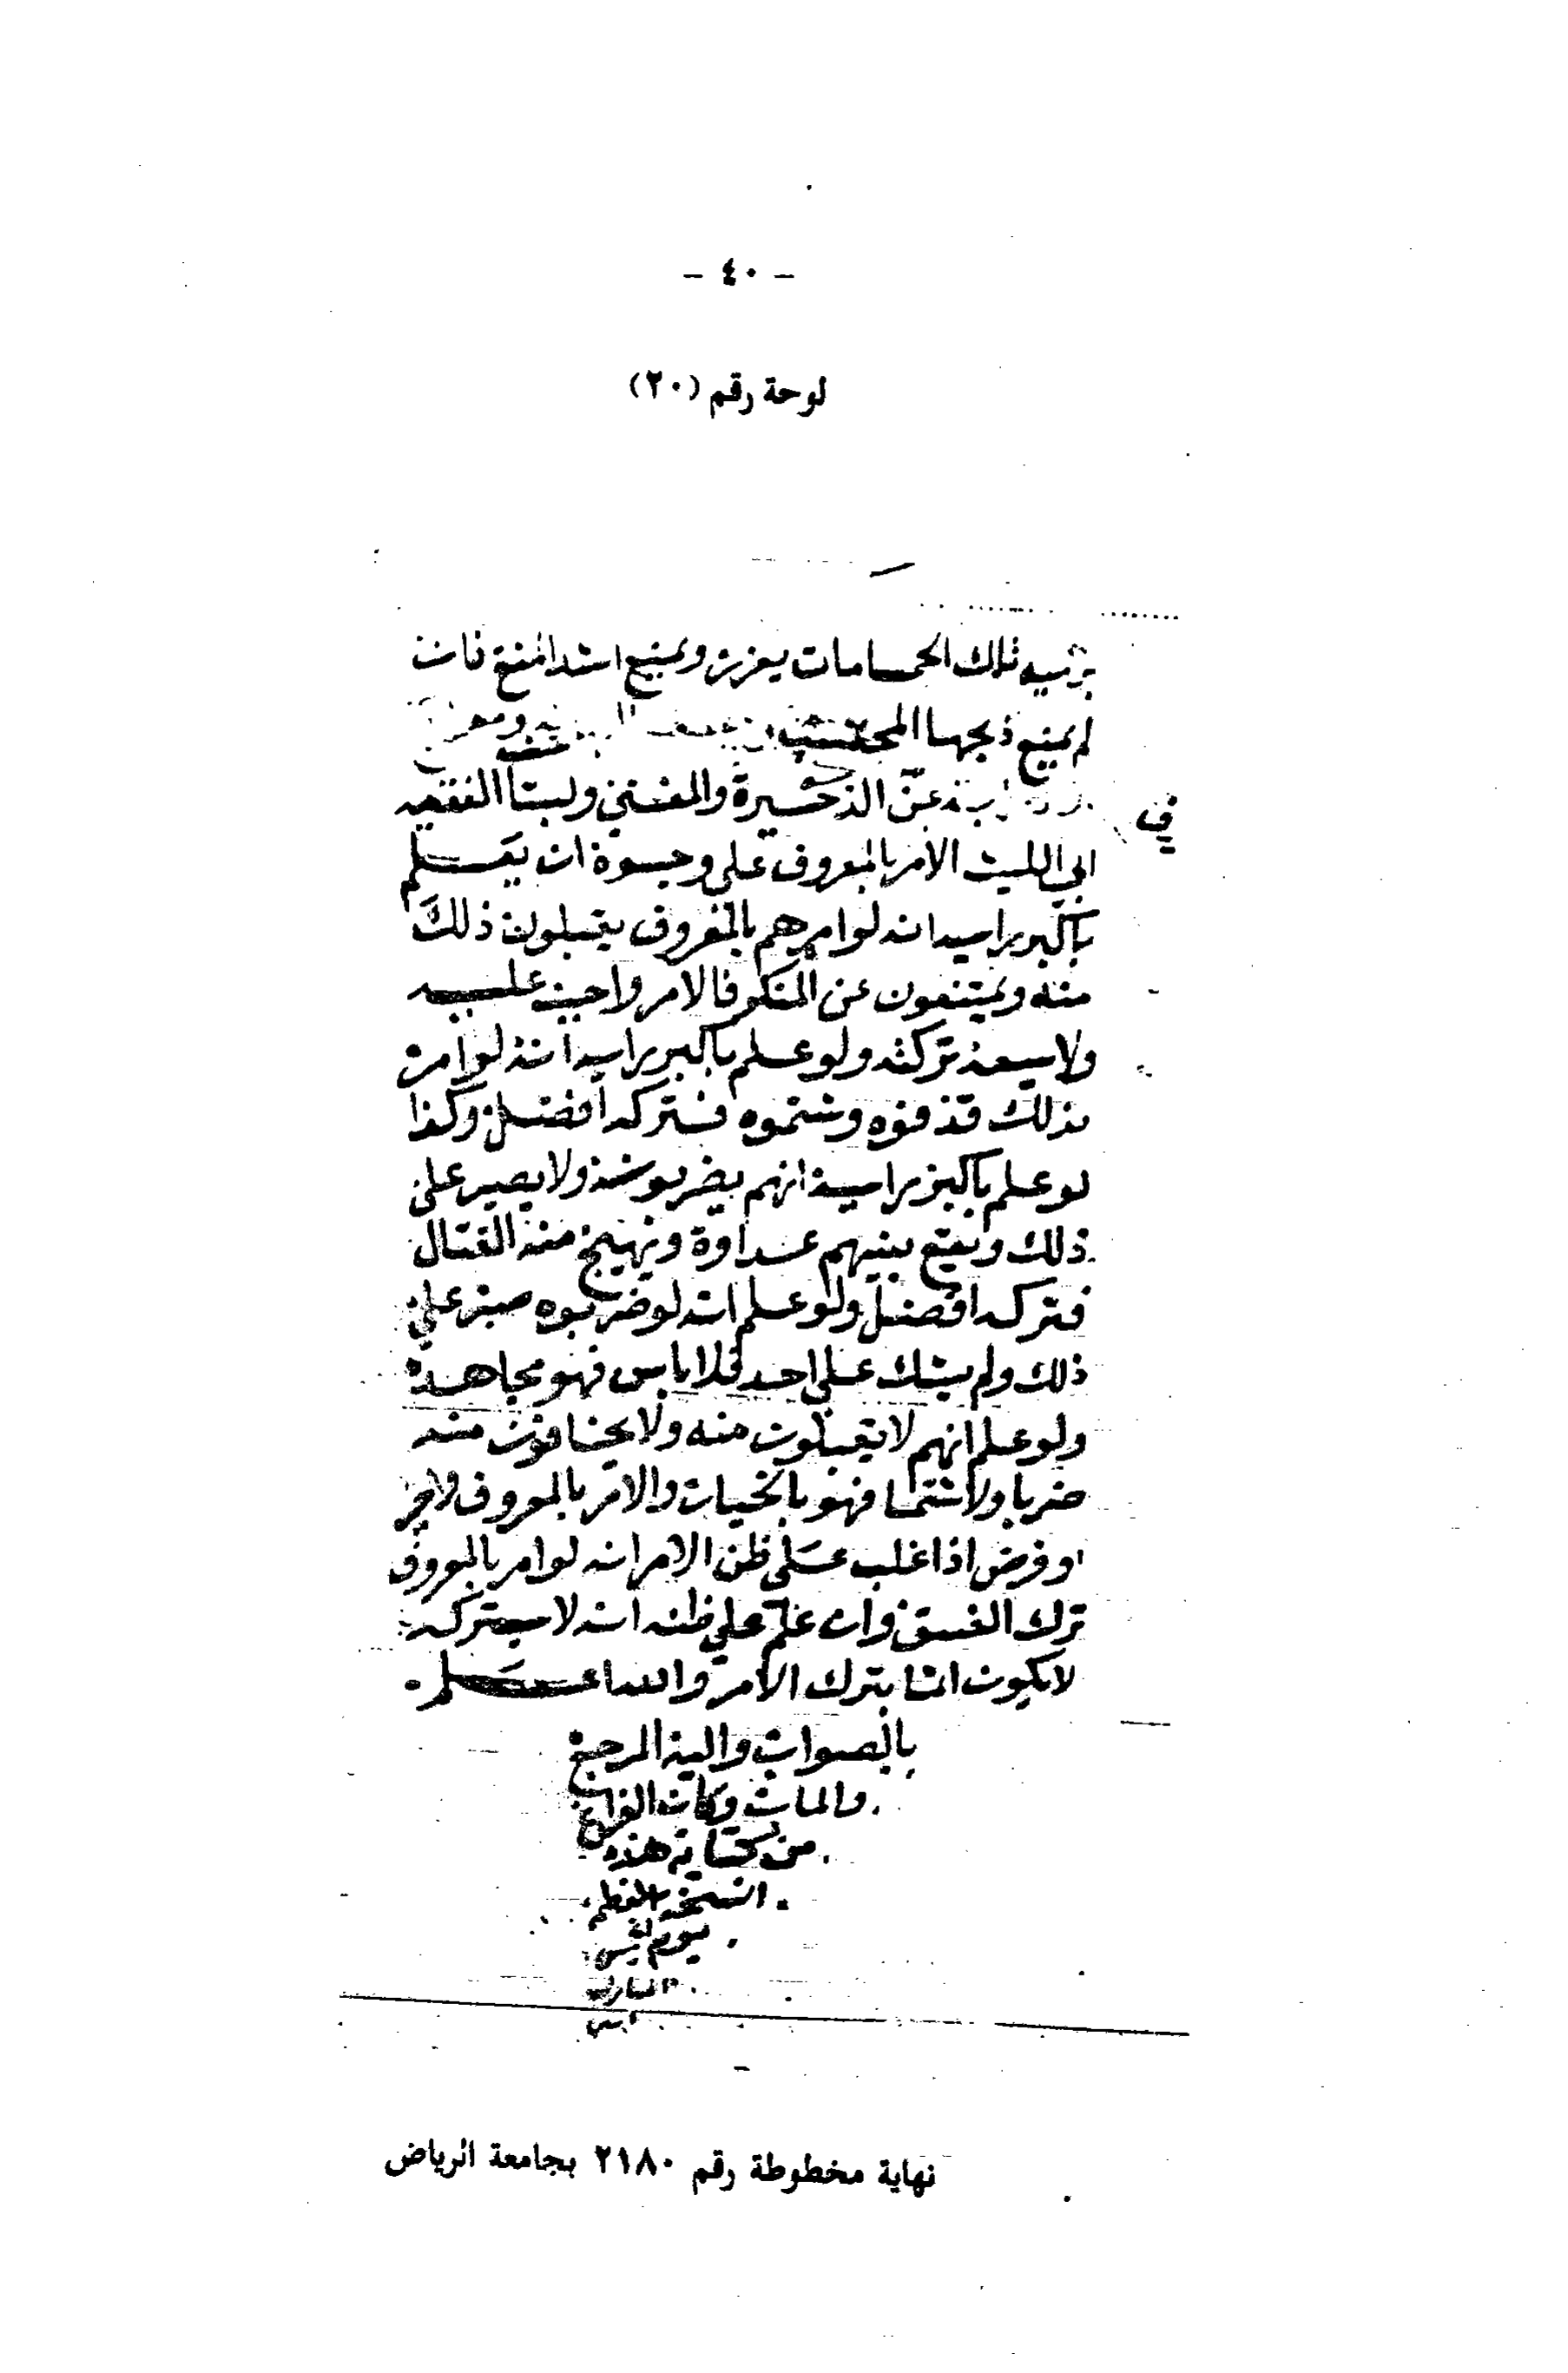 - ٤٠ -
لوحة رقم (٢٠)
برميه تلك الحمامات يعزر ويمنع اشد المنع فان
لم يمنع ذبحها المحتسب
في
عن الذخيرة والمغني ولبستا الفقيه
ابي الليث الامر بالمعروف على وجوه ان يعلم
باكبر رايه انه لو امرهم بالمعروف يقبلون ذلك
منه ويمتنعون عن المنكر فالامر واجب عليه
ولا يسعه تركه ولو علم باكبر رايه انه لو امر
بذلك قذفوه وشتموه فتركه افضل وكذا
لو علم باكبر رايه انهم يضربونه ولا يصبر على
ذلك ويقع بينهم عداوة ويهيج منه القتال
فتركه افضل ولو علم انه لو ضربوه صبر على
ذلك ولم يشك على احد فلا باس فهو مجاهد
ولو علم انهم لا يقبلون منه ولا يخافون منه
ضربا ولا شتما فهو بالخيار والامر بالمعروف
او فرض اذا غلب على ظن الامر انه لو امر بالمعروف
ترك الفسق وان علم على ظنه انه لا يتركه
لا يكون اثما بترك الامر والله اعلم
بالصواب واليه المرجع
والماب وكان الفراغ
من كتابة هذه
النسخة
يوم
المبارك
نهاية مخطوطة رقم ٢١٨٠ بجامعة الرياض